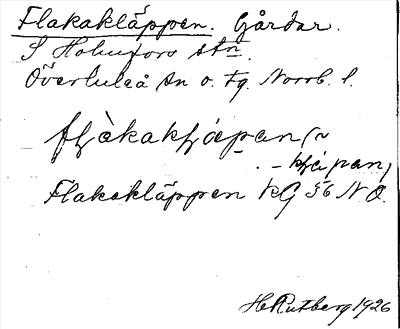 Flakakläppen. Gårdar.
S Holmfors stn.
Överluleå sn o. tg. Norrb. l.
Flakakläppen KG 56 NO.
H Rutberg 1926